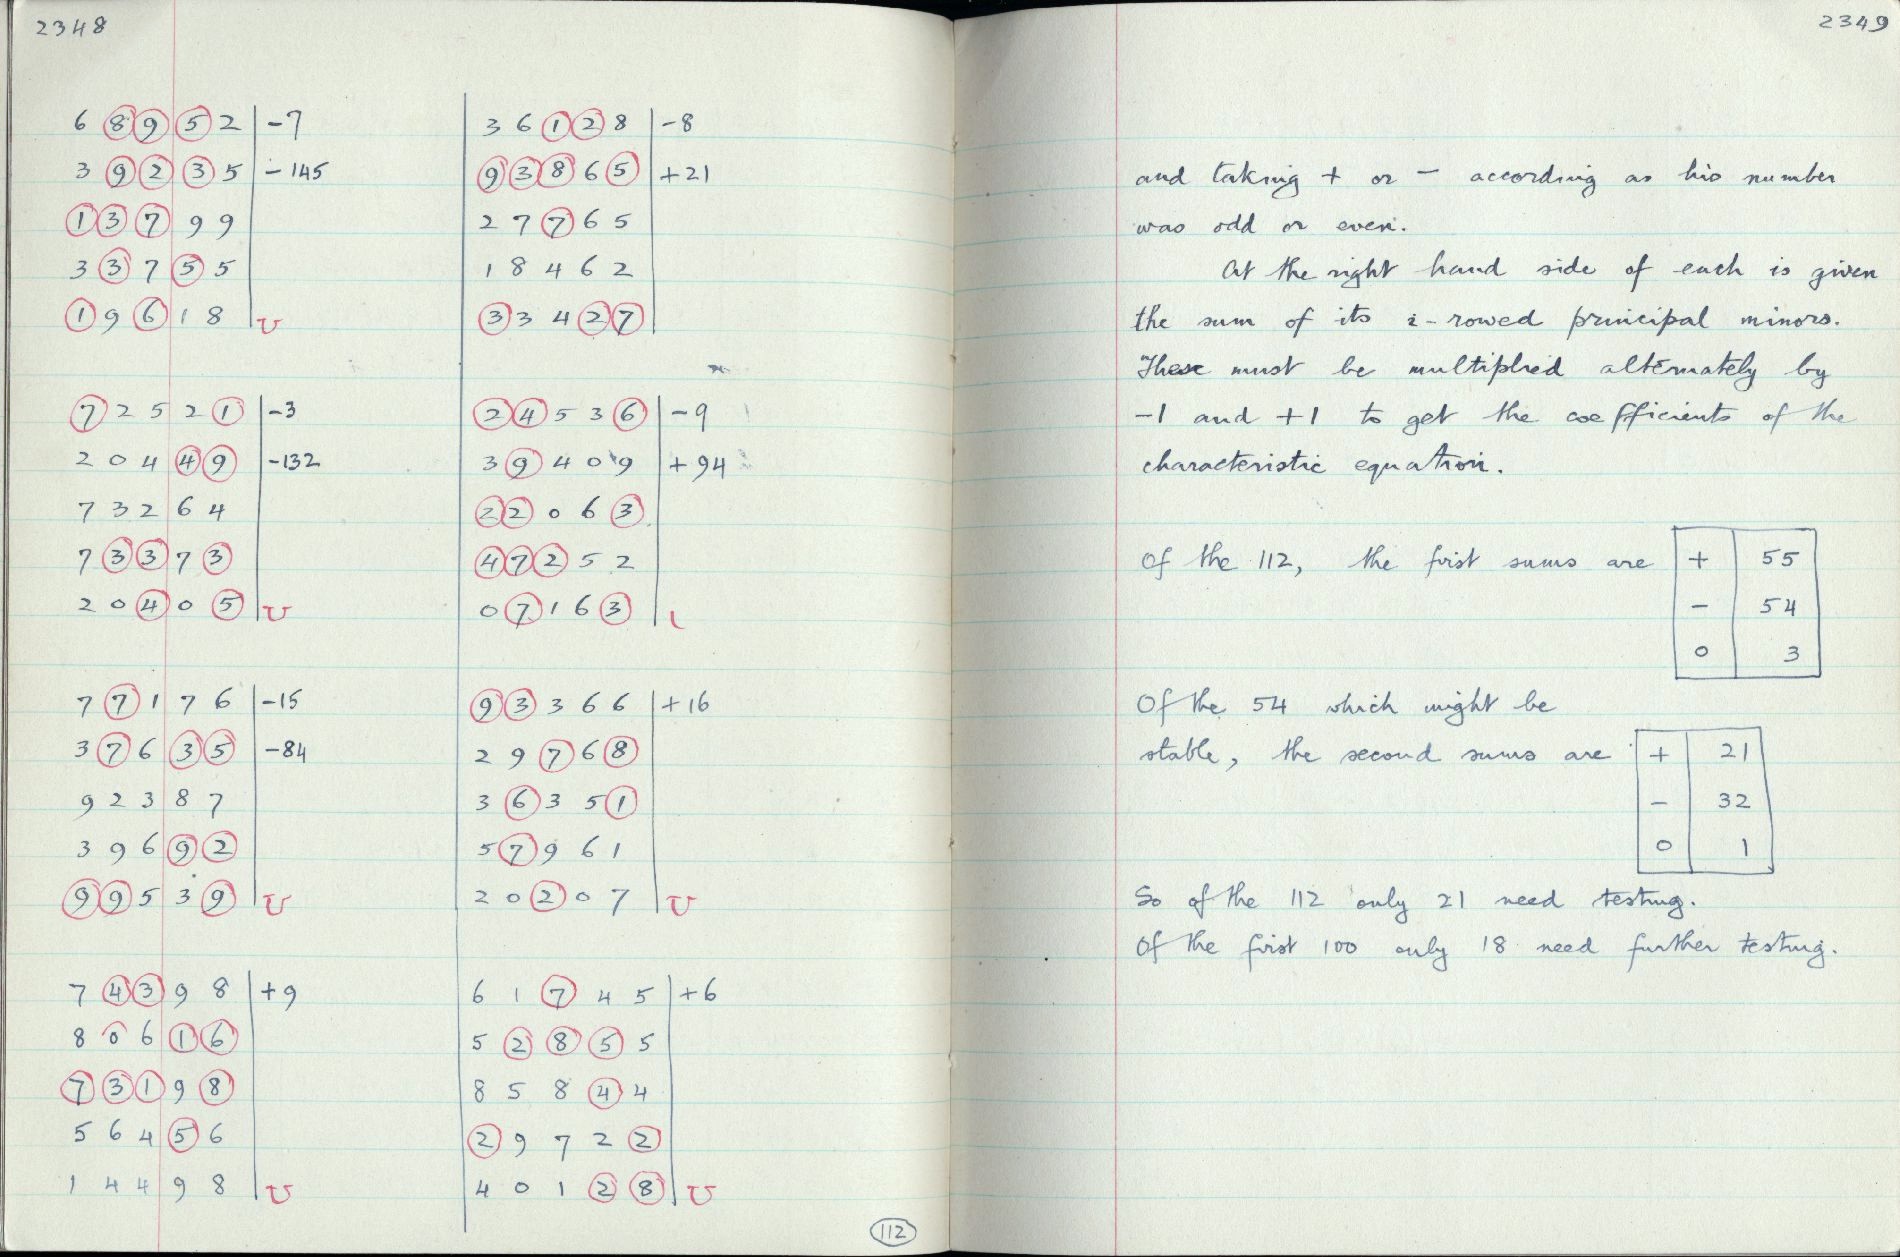 2348
6 8 9 5 2 | -7
3 9 2 3 5 | -145
1 3 7 9 9
3 3 7 5 5
1 9 6 1 8 | U
7 2 5 2 1 | -3
2 0 4 4 9 | -132
7 3 2 6 4
7 3 3 7 3
2 0 4 0 5 | U
7 7 1 7 6 | -15
3 7 6 3 5 | -84
9 2 3 8 7
3 9 6 9 2
9 9 5 3 9 | U
7 4 3 9 8 | +9
8 0 6 1 6
7 3 1 9 8
5 6 4 5 6
1 4 4 9 8 | U
3 6 1 2 8 | -8
9 3 8 6 5 | +21
2 7 7 6 5
1 8 4 6 2
3 3 4 2 7
2 4 5 3 6 | -9
3 9 4 0 9 | +94
2 2 0 6 3
4 7 2 5 2
0 7 1 6 3
9 3 3 6 6 | +16
2 9 7 6 8
3 6 3 5 1
5 7 9 6 1
2 0 2 0 7 | U
6 1 7 4 5 | +6
5 2 8 5 5
8 5 8 4 4
2 9 7 2 2
4 0 1 2 8 | U
112
2349
and taking + or - according as his number
was odd or even.
At the right hand side of each is given
the sum of its i-rowed principal minors.
These must be multiplied alternately by
-1 and +1 to get the coefficients of the
characteristic equation.
Of the 112, the first sums are + 55
- 54
0 3
Of the 54 which might be
stable, the second sums are + 21
- 32
0 1
So of the 112 only 21 need testing.
Of the first 100 only 18 need further testing.